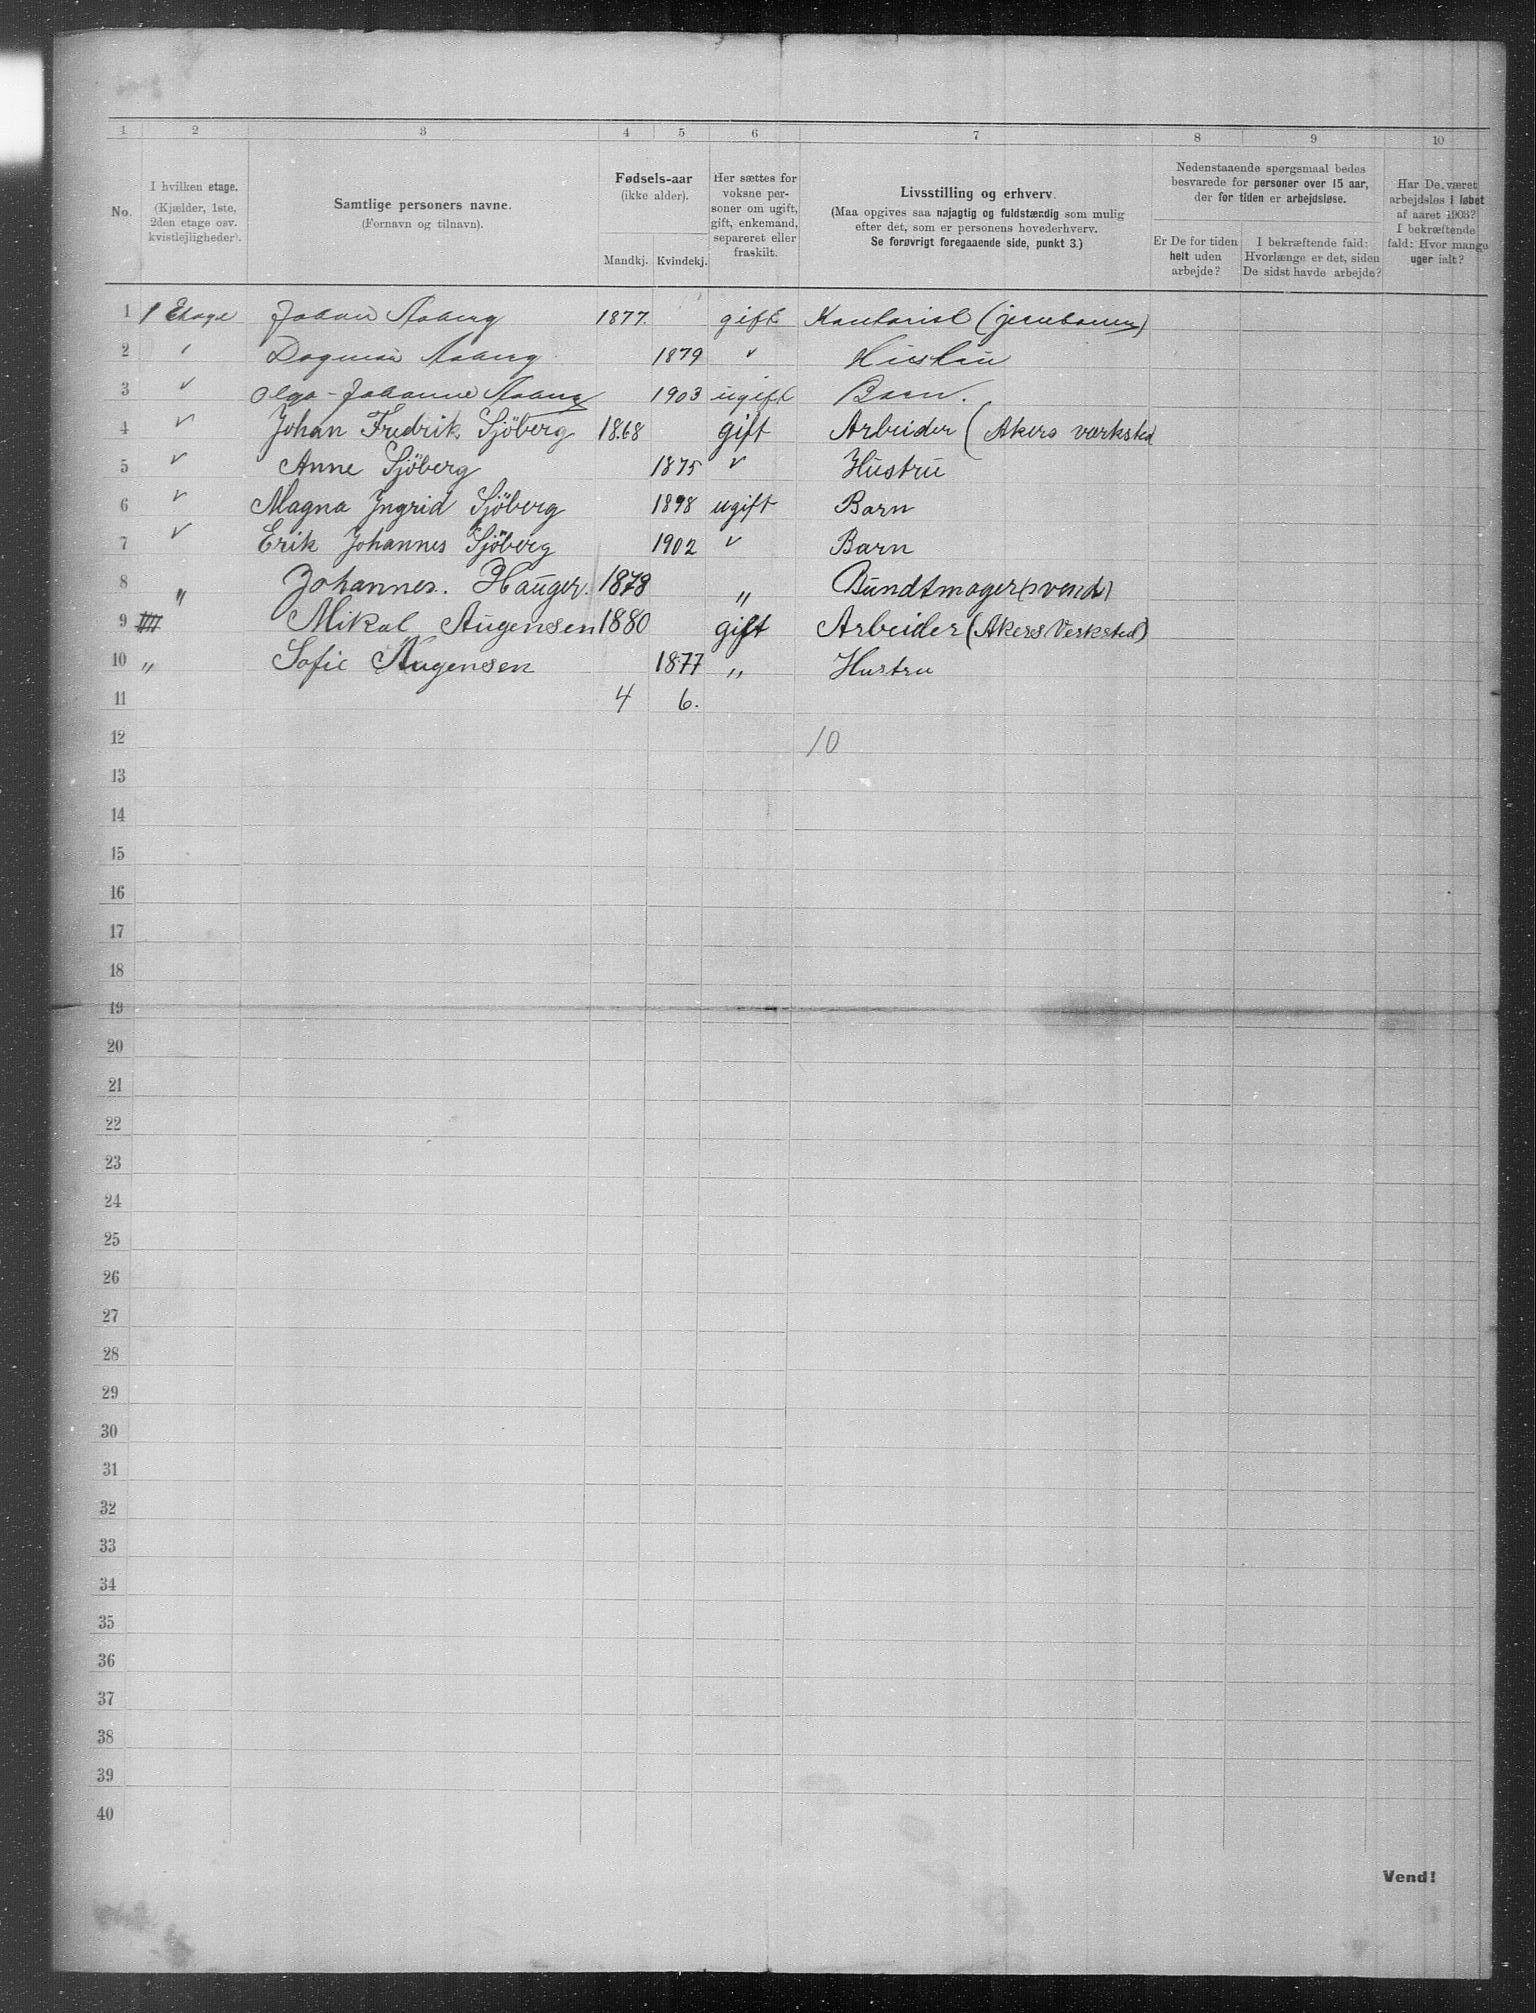 1 2 3 4 5 6 7 8 9 10
No.
I hvilken etage.
(Kjælder, 1ste,
2den etage osv.
kvistlejligheder).
Samtlige personers navne.
(Fornavn og tilnavn).
Fødsels-aar
(ikke alder).
Mandkj. Kvindekj.
Her sættes for
voksne per-
soner om ugift,
gift, enkemand,
separeret eller
fraskilt.
Livsstilling og erhverv.
(Maa opgives saa nøjagtig og fuldstændig som mulig
efter det, som er personens hovederhverv.
Se forøvrigt foregaaende side, punkt 3.)
Nedenstaaende spørgsmaal bedes
besvarede for personer over 15 aar,
der for tiden er arbejdsløse.
Er De for tiden
helt uden
arbejde?
I bekræftende fald:
Hvorlænge er det, siden
De sidst havde arbejde?
Har De været
arbejdsløs i løbet
af aaret 1903?
I bekræftende
fald: Hvor mange
uger ialt?
1 1 Etage Johan Aaberg 1877. gift Kontorist (jernbanen)
2 " Dagmar Aaberg 1879 " Hustru
3 " Olga-Johanne Aaberg 1903 ugift Barn.
4 " Johan Fredrik Sjöberg 1868 gift Arbeider (Akers værksted
5 " Anne Sjöberg 1875 " Hustru
6 " Magna Ingrid Sjöberg 1898 ugift Barn
7 " Erik Johannes Sjöberg 1902 " Barn
8 " Johannes. Hauger. 1878 " Bundtmager (svend)
9 Mikal Augensen 1880 gift Arbeider (Akers Verksted)
10 " Sofie Augensen 1877 " Hustru
11 4 6.
12 10
13
14
15
16
17
18
19
20
21
22
23
24
25
26
27
28
29
30
31
32
33
34
35
36
37
38
39
40
Vend!